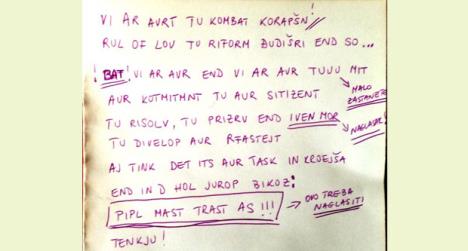 VI AR AVRT TU KOMBAT KORAPŠN!
RUL OF LOV TU RIFORM ĐUDIŠRI END SO...
! BAT! VI AR AUR END VI AR AUR TUUU MIT
MALO ZASTANEM
AUR KOTMITMNT TU AUR SITIZENT
TU RISOLV, TU PRIZRV END IVEN MOR
NAGLASAK!
TU DIVELOP AUR RFASTEJT
AJ TINK DET ITS AUR TASK IN KROEJŠA
END IN D HOL JUROP BIKOZ:
PIPL MAST TRAST AS!!!
OVO TREBA NAGLASITI
TENKJU!